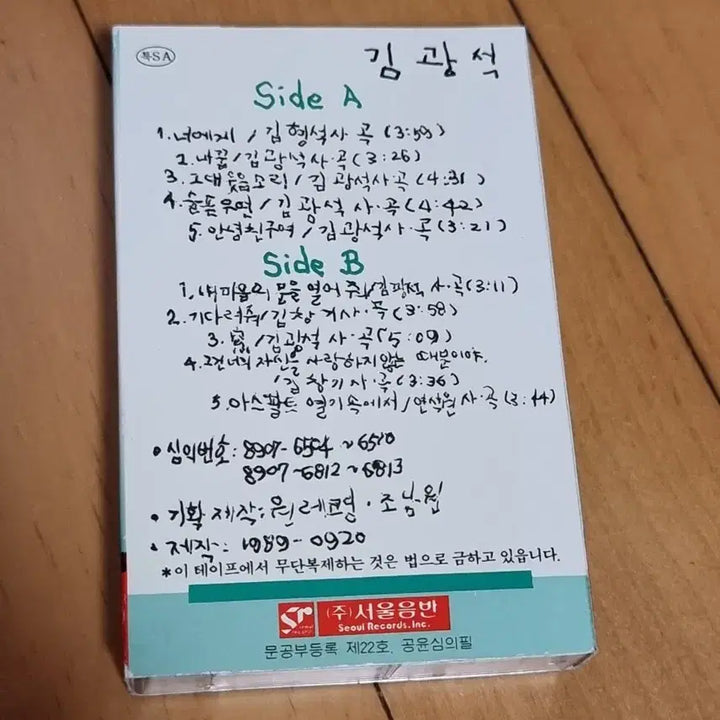 특SA
김광석
Side A
1. 너에게 / 김형석 사·곡 (3:59)
2. 나꿈 / 김광석 사·곡 (3:26)
3. 그대 웃음소리 / 김광석 사·곡 (4:31)
4. 슬픈우연 / 김광석 사·곡 (4:42)
5. 안녕친구여 / 김광석 사·곡 (3:21)
Side B
1. 내마음의 문을 열어 줘 / 김광석 사·곡 (3:11)
2. 기다려줘 / 김창기 사·곡 (3:58)
3. / 김광석 사·곡 (5:09)
4. 그건 너의 자신을 사랑하지 않는 때문이야.
/ 김창기 사·곡 (3:36)
5. 아스팔트 열기속에서 / 연석원 사·곡 (3:44)
• 심의번호: 8907-6504~6510
8907-6812~6813
• 기획 제작: 원레코드·조남원
• 제작: 1989-0920
*이 테이프에서 무단복제하는 것은 법으로 금하고 있읍니다.
SR (주)서울음반
Seoul Records. Inc.
문공부등록 제22호. 공윤심의필